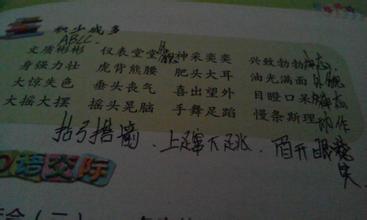 积少成多
ABCC
文质彬彬 仪表堂堂 神采奕奕 兴致勃勃
身强力壮 虎背熊腰 肥头大耳 油光满面
大惊失色 垂头丧气 喜出望外 目瞪口呆
大摇大摆 摇头晃脑 手舞足蹈 慢条斯理 动作
上蹿下跳 眉开眼笑
口语交际